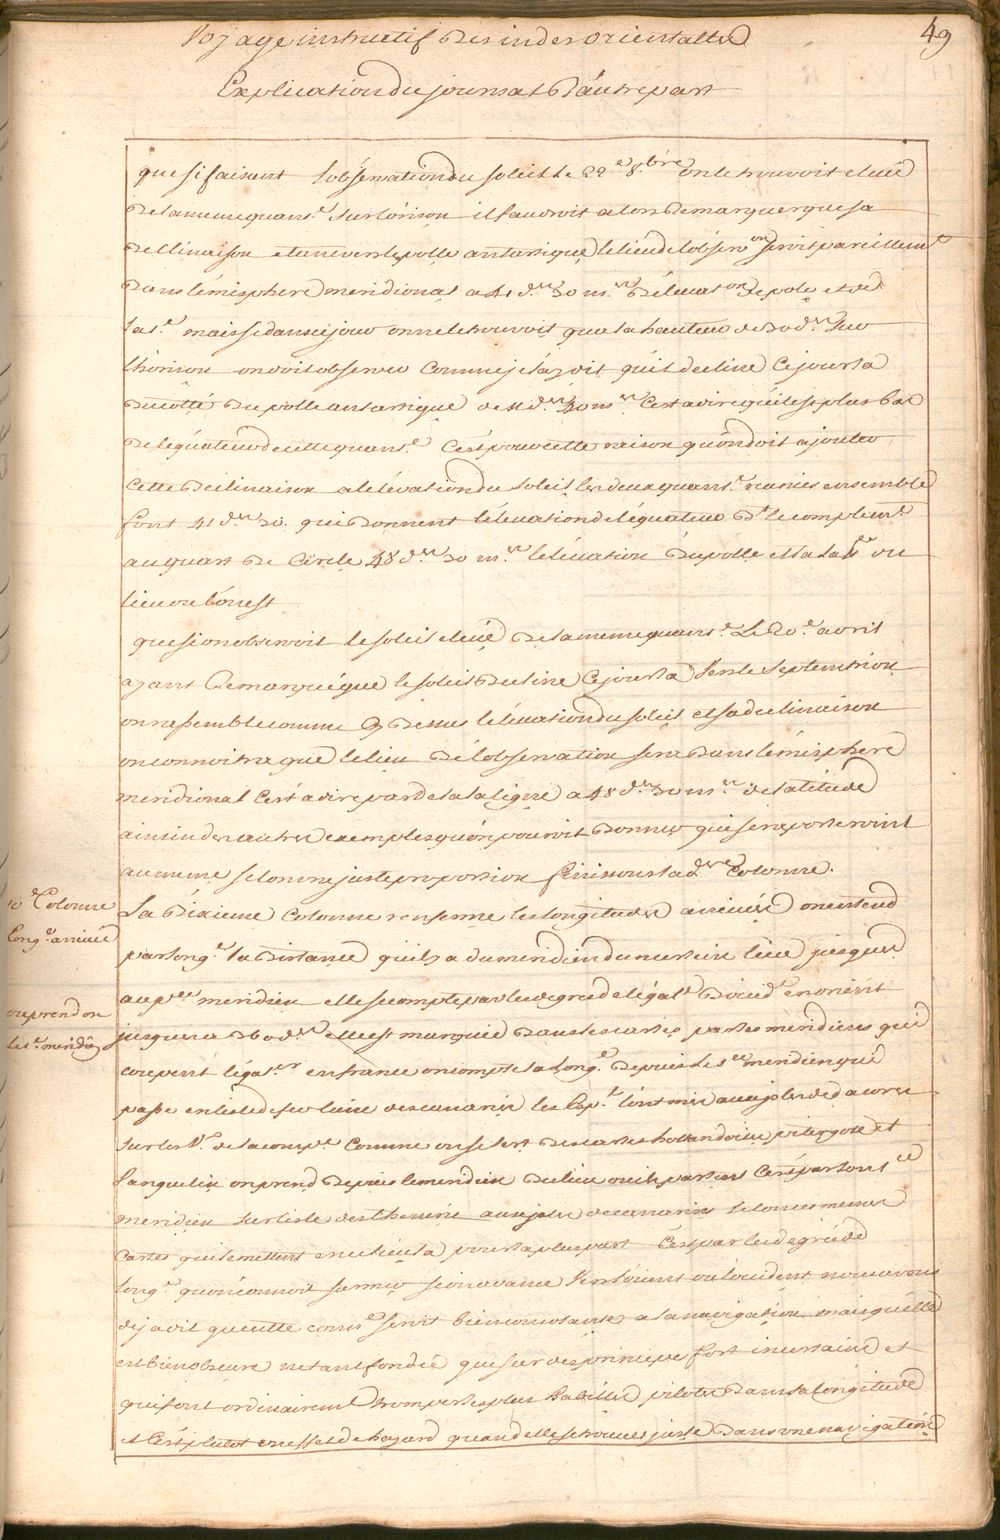 49
Voyage instructif Des indes orientalles
Explication du journal D'autrepart
que si faisant l'observation du soleil le 22e 8.bre on le trouvoit elevé
De la meme quant.e sur l'orison il faudroit alors Remarquer que sa
Dellinaison etant vers le polle antartique le lieu de l'obser.on seroit pareillem.t
Dans lémisphere meridional a 41 d.es 30 m.es D'elevat.on de pole et de
lat.e mais si dans ce jour on ne le trouvoit qua la hauteur de 30 d.es sur
l'horison on doit observer comme je l'ay dit qu'il decline ce jour la
Du cotté Du polle antartique de 11 d.es 30 m.es C'est a dire qu'il est plus bas
De l'equateur de cette quant.e C'est pour cette raison qu'on doit ajouter
Cette Declinaison a l'elevation du soleil les deux quant.e reunies ensemble
font 41 d.es 30. qui Donnent l'elevation de l'équateur D.t le complem.t
au quart De Cercle 48 d.es 30 m.es l'elevation Du polle et la lat.e du
lieu ou l'on est
que si on observoit le soleil elevé De la meme quant.e Le 20.e avril
ayant Remarqué que le soleil Decline ce jour la vers le septentrion
on rassemble comme Cy Dessus l'elevation du soleil et sa declinaison
on connoitra que le lieu De l'observation sera Dans l'émisphere
meridional C'est a dire par dela la ligne a 48 d.es 30 m.es de latitude
ainsin des autres exemples qu'on pouroit Donner qui se raporteroint
au meme selon une juste proportion finissons la d.ere Colonne.
10e Colonne
Long.e arrivée
La Dixieme Colonne renferme les longitudes arrivée on entend
par long.e la Distance qu'il y a du meridien du lieu jusques
au p.er meridien elle se compte par les degres de l'égat.r D'occid.t en orient
ou prend on
le 1.er meridien
jusques a 360 d.es elle est marquée Dans les cartes par les meridiens qui
coupent l'égat.r en france on compte la long.e Depuis le 1.er meridien qui
passe en l'isle de fer l'une des canaries les Esp.ls l'ont mis aux isles des acores
sur les V.x de la comp.e Comme on se sert Des cartes hollandoises pitergote et
Vanqueulin on prend Depuis le meridien Du lieu ou ils partent C'est par tout ce
meridien sur l'isle des thenerif aux isles de canaries selon les memes
Cartes qui le mettent en ce lieu la pour la plus part C'est par les degrés de
long.e qu'on connoit sur mer si on avance vers l'orient ou l'occident nous avons
deja dit que cette conn.ce seroit bien importante a la navigation mais qu'elle
est bien obscure n'etant fondée que sur des principes fort incertains et
qui font ordinairem.t tromper les plus habilles pilotes Dans la longitude
et C'est plutot un effet de hazard quand elle se trouve juste Dans une navigation